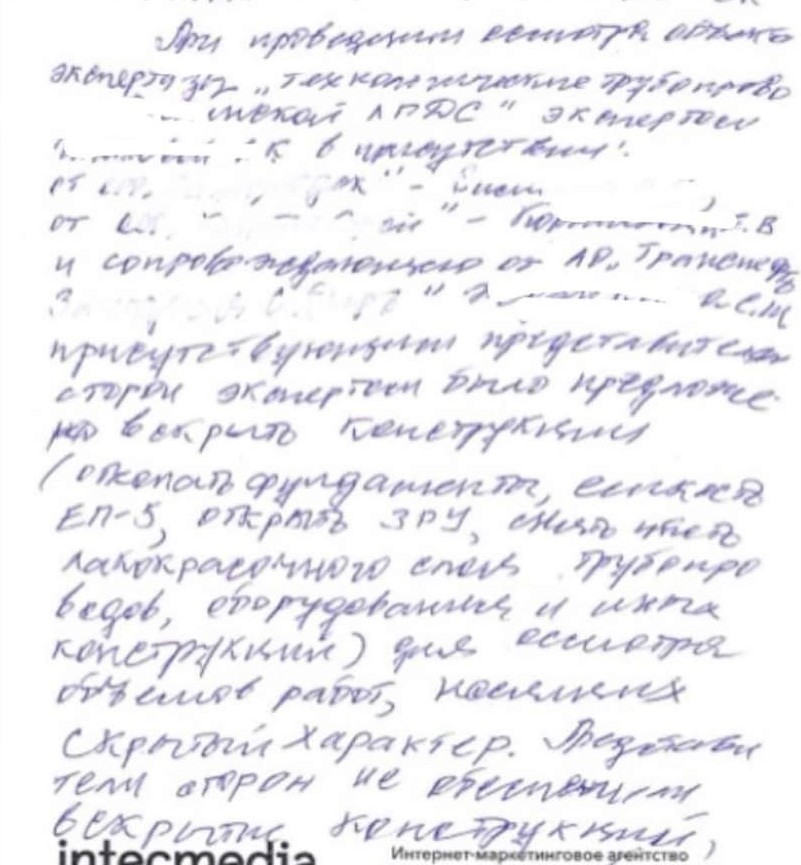 При проведении осмотра объекта
экспертизы „технологические трубопрово
нской ЛПДС" экспертом
К в присутствии:
от
от " – В
и сопровождающего от АО „Транснефть
"
присутствующим представителям
сторон экспертом было предложе
но вскрыть конструкции
(откопать фундаменты, емкость
ЕП-5, открыть ЗРУ, снять часть
лакокрасочного слоя трубопро
водов, оборудования и
конструкций) для осмотра
объемов работ, носящих
скрытый характер. Представи
тели сторон не обеспечили
вскрытие конструкций,
intecmedia
Интернет-маркетинговое агентство